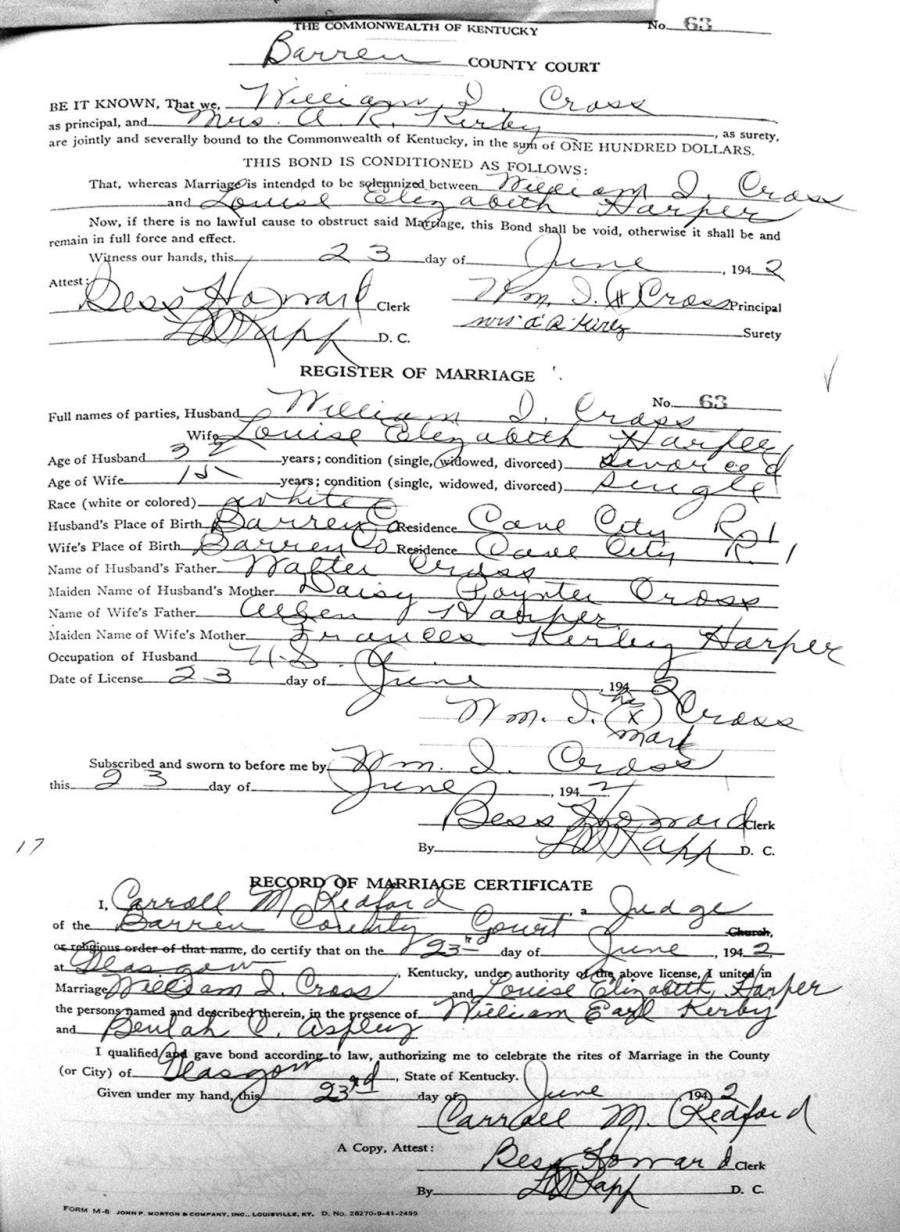 THE COMMONWEALTH OF KENTUCKY No. 63
Barren COUNTY COURT
BE IT KNOWN, That we, William I. Cross
as principal, and Mrs. A. R. Kirby, as surety,
are jointly and severally bound to the Commonwealth of Kentucky, in the sum of ONE HUNDRED DOLLARS.
THIS BOND IS CONDITIONED AS FOLLOWS:
That, whereas Marriage is intended to be solemnized between William I. Cross
and Louise Elizabeth Harper
Now, if there is no lawful cause to obstruct said Marriage, this Bond shall be void, otherwise it shall be and
remain in full force and effect.
Witness our hands, this 23 day of June, 1942
Attest:
Bess Howard Clerk Wm. I. (X) Cross Principal
D. C. Mrs A R Kirby Surety
REGISTER OF MARRIAGE
No. 63
Full names of parties, Husband William I. Cross
Wife Louise Elizabeth Harper
Age of Husband 32 years; condition (single, widowed, divorced) divorced
Age of Wife 15 years; condition (single, widowed, divorced) single
Race (white or colored) white
Husband's Place of Birth Barren Co Residence Cave City R. 1
Wife's Place of Birth Barren Co Residence Cave City R. 1
Name of Husband's Father Walter Cross
Maiden Name of Husband's Mother Daisy Poynter Cross
Name of Wife's Father Allen Harper
Maiden Name of Wife's Mother Frances Kirby Harper
Occupation of Husband U.S. A.
Date of License 23 day of June, 1942
Wm. I. his (X) mark Cross
Subscribed and sworn to before me by Wm. I. Cross
this 23 day of June, 1942
Bess Howard Clerk
17
By D. C.
RECORD OF MARRIAGE CERTIFICATE
I, Carroll M. Redford, a Judge
of the Barren County Court Church,
or religious order of that name, do certify that on the 23rd day of June, 1942
at Glasgow, Kentucky, under authority of the above license, I united in
Marriage William I. Cross and Louise Elizabeth Harper
the persons named and described therein, in the presence of William Earl Kirby
and Beulah C. Aspley
I qualified and gave bond according to law, authorizing me to celebrate the rites of Marriage in the County
(or City) of Glasgow, State of Kentucky.
Given under my hand, this 23rd day of June 1942
Carroll M. Redford
A Copy, Attest:
Bess Howard Clerk
By D. C.
FORM M-8 JOHN P. MORTON & COMPANY, INC., LOUISVILLE, KY. D. No. 26270-9-41-2499